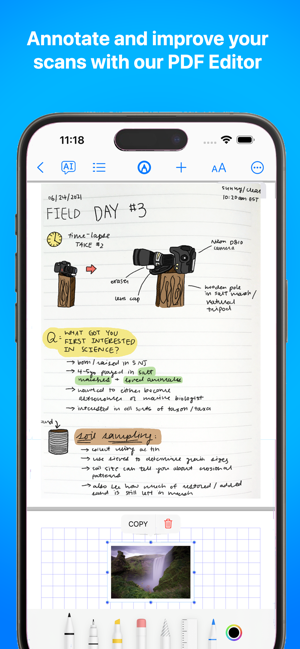 Annotate and improve your
scans with our PDF Editor
11:18
AI
AA
06/24/2021
sunny/clear
10:20am EST
FIELD DAY #3
Time-lapse
TAKE #2
camera
eraser
lens cap
wooden pole
in salt marsh/
natural
tripod
Q: WHAT GOT YOU
FIRST INTERESTED
IN SCIENCE?
→ born/raised in S NJ
→ played in salt
marshes + loved animals
→ wanted to either become
astronomer or marine biologist
→ interested in all sorts of
soil sampling:
→ collect using
→ use sieves to determine grain sizes
→ soil size can tell you about erosional
patterns
→ also see how much of restored/added
sand is still left in marsh
COPY